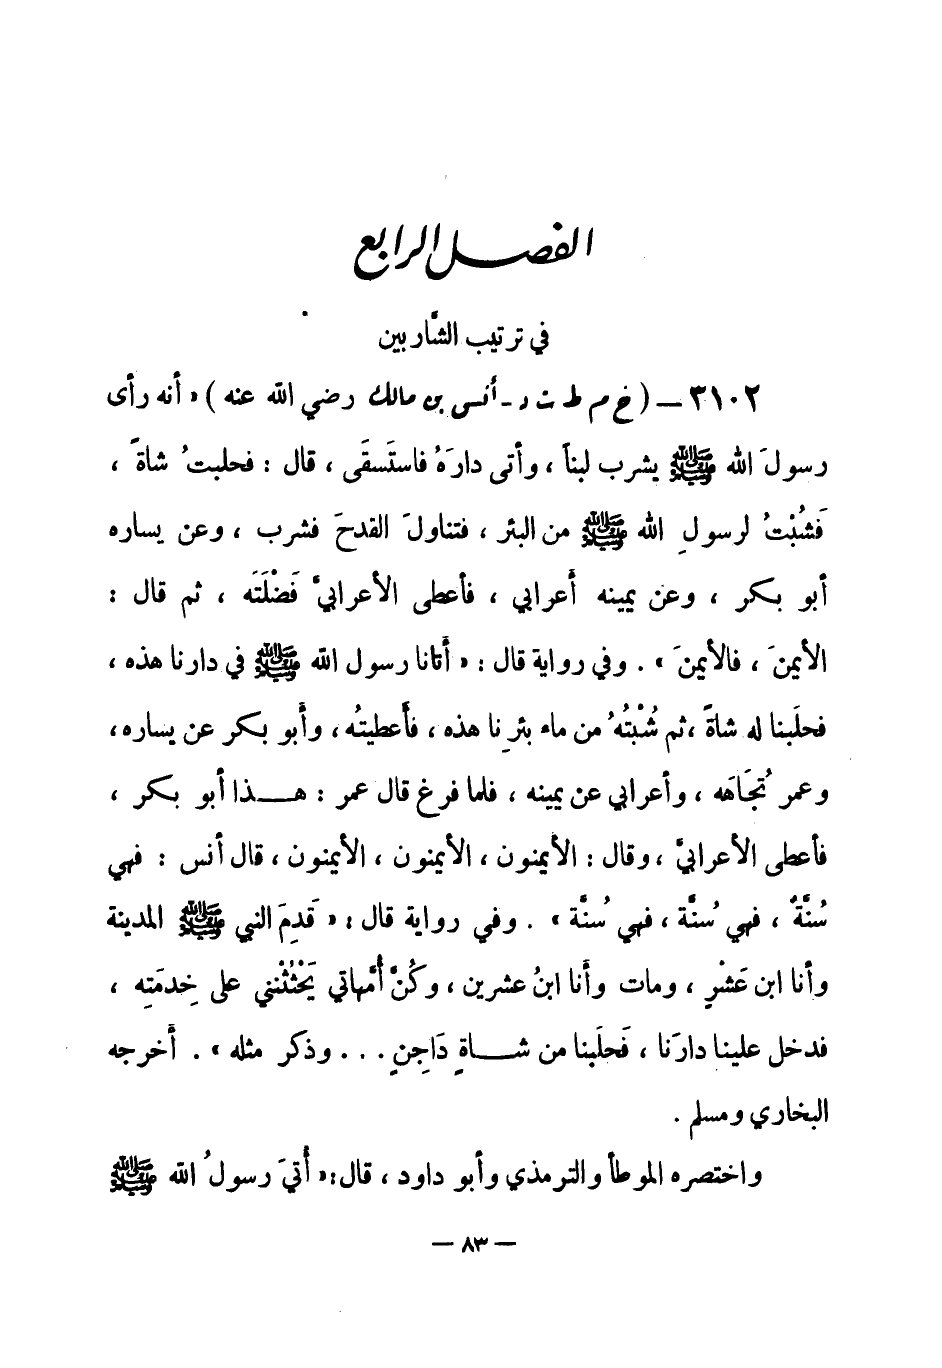 الفصل الرابع
في ترتيب الشَّاربين
٣١٠٢ – (خ م ط ت د - أنس بن مالك رضي الله عنه) « أنه رأى
رسولَ الله ﷺ يشرب لبناً ، وأتى دارَهُ فاستَسقَى ، قال : فحلبتُ شاةً ،
فَشُبْتُ لرسولِ الله ﷺ من البئر ، فتناولَ القدحَ فشرب ، وعن يساره
أبو بكر ، وعن يمينه أعرابي ، فأعطى الأعرابيَّ فَضْلَتَه ، ثم قال :
الأيمنَ ، فالأيمنَ » . وفي رواية قال : « أتانا رسول الله ﷺ في دارنا هذه ،
فحلَبنا له شاةً ، ثم شُبْتُهُ من ماء بئرِنا هذه ، فأعطيتُه ، وأبو بكر عن يساره ،
وعمر تُجَاهَه ، وأعرابي عن يمينه ، فلما فرغ قال عمر : هـذا أبو بكر ،
فأعطى الأعرابيَّ ، وقال : الأيمنون ، الأيمنون ، الأيمنون ، قال أنس : فهي
سُنَّةٌ ، فهي سُنَّة ، فهي سُنَّة » . وفي رواية قال : « قَدِمَ النبي ﷺ المدينة
وأنا ابن عَشْرٍ ، ومات وأنا ابنُ عشرين ، وكُنَّ أُمَّهاتي يَحْثُثْنني على خِدمَتِه ،
فدخل علينا دارَنا ، فَحلَبنا من شـاةٍ دَاجِنٍ ... وذكر مثله » . أخرجه
البخاري ومسلم .
واختصره الموطأ والترمذي وأبو داود ، قال : « أُتيَ رسولُ الله ﷺ
– ٨٣ –